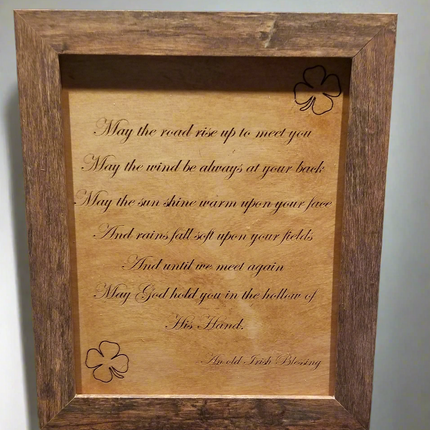 May the road rise up to meet you
May the wind be always at your back
May the sun shine warm upon your face
And rains fall soft upon your fields
And until we meet again
May God hold you in the hollow of
His Hand.
An old Irish Blessing